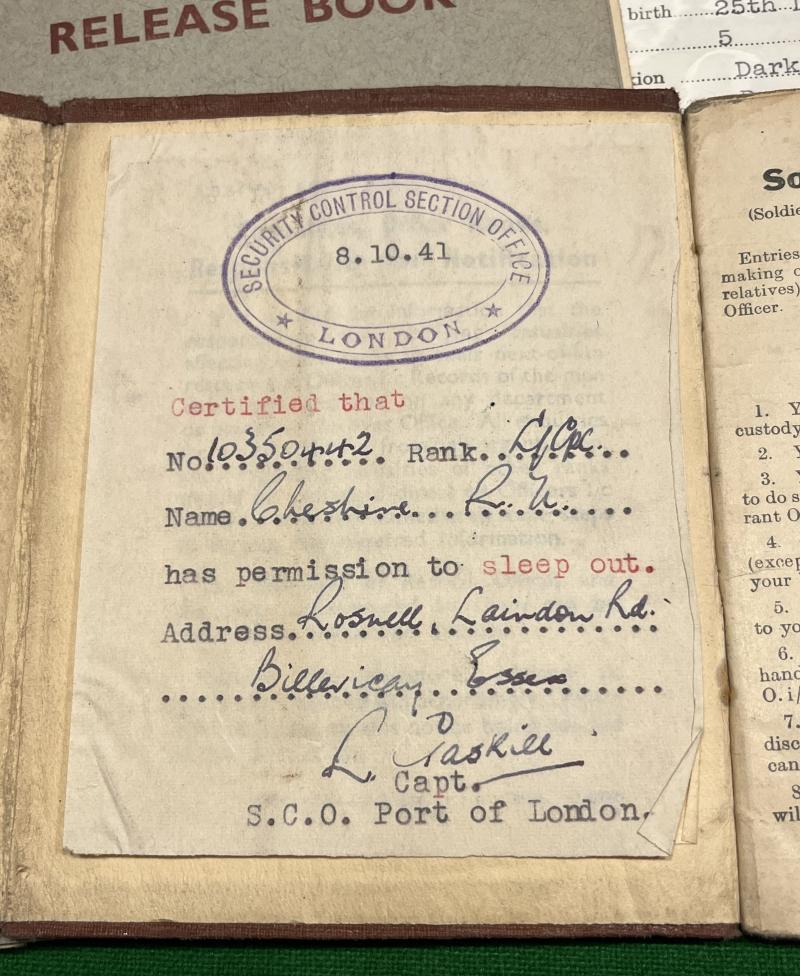 RELEASE BOOK
birth ....25th
5
Dark
SECURITY CONTROL SECTION OFFICE
8.10.41
★ LONDON ★
Certified that
No.10350442. Rank..L/Cpl...
Name.Cheshire...R.N....
has permission to sleep out.
Address.Rosnell, Laindon Rd.
Billericay Essex
L. Gaskill
Capt.
S.C.O. Port of London.
(Soldie
Entries
making o
relatives)
Officer.
1. Y
custody
2. Y
3. Y
to do s
rant O
4.
(excep
your
5.
to yo
6.
hand
O.i/
7.
disc
can
8
wil